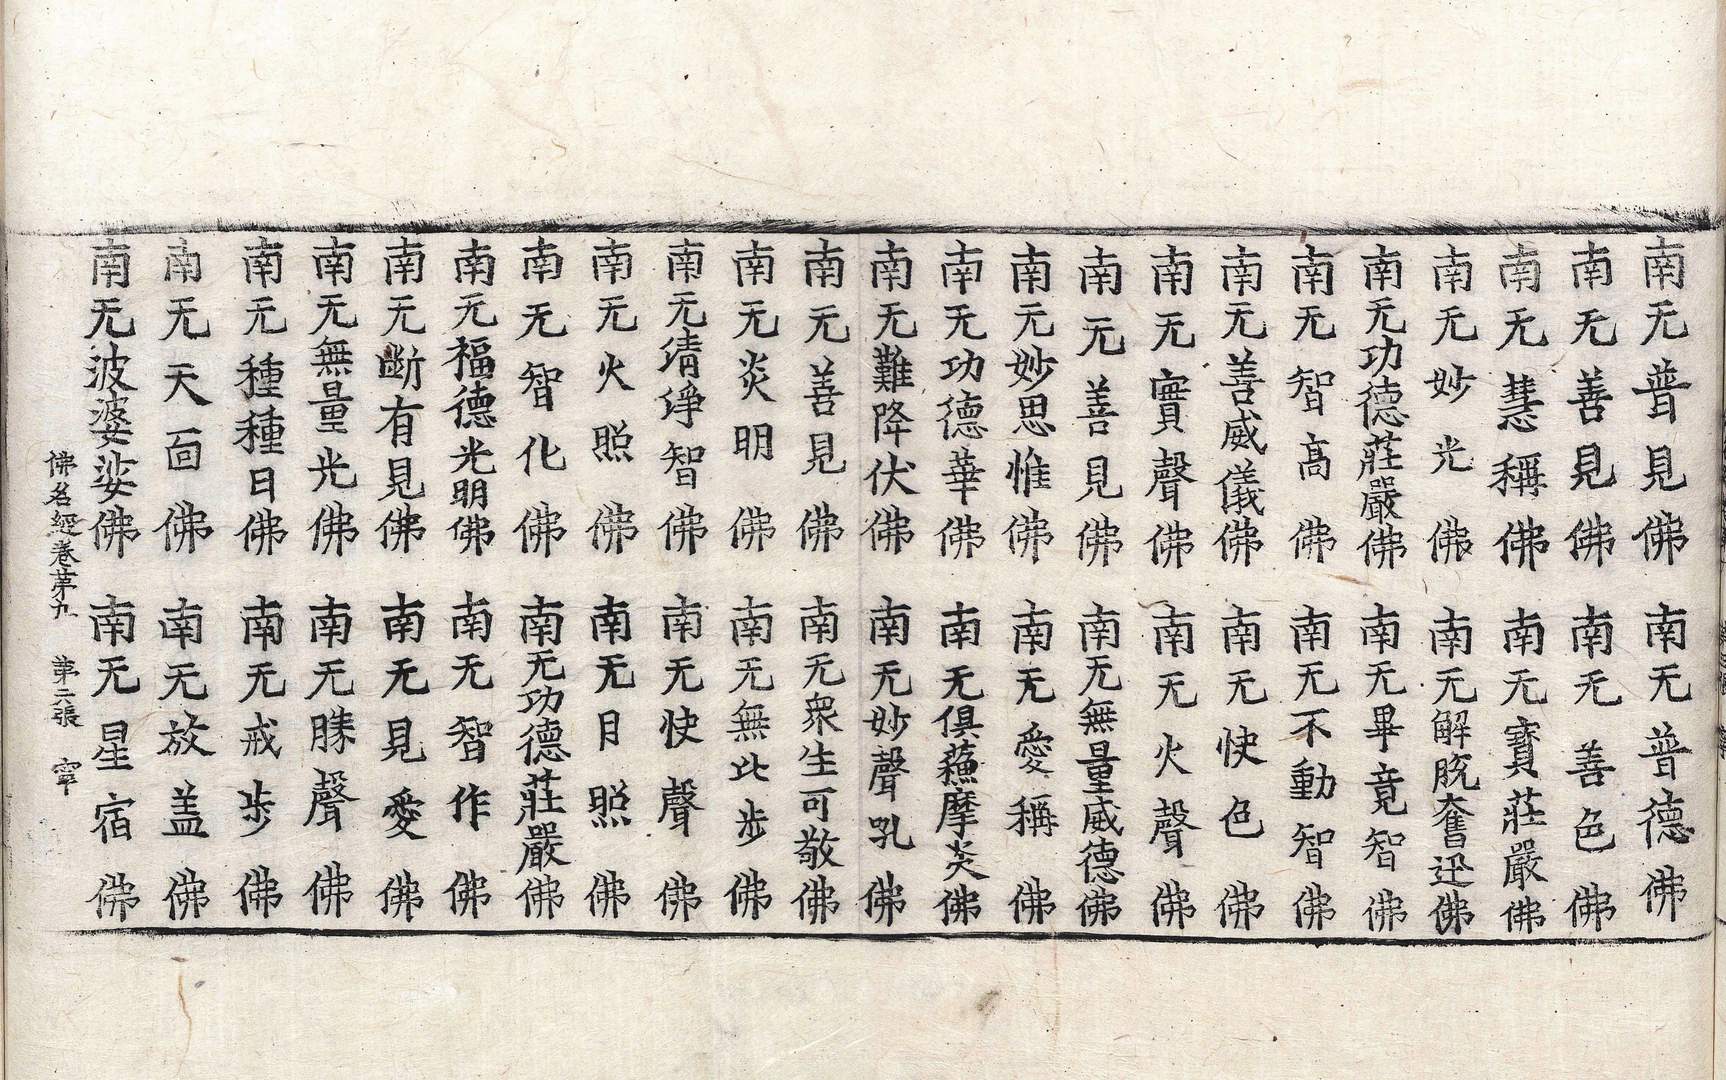 南无普見佛　南无普德佛
南无善見佛　南无善色佛
南无慧稱佛　南无寶莊嚴佛
南无妙光佛　南无解脫奮迅佛
南无功德莊嚴佛　南无畢竟智佛
南无智高佛　南无不動智佛
南无善威儀佛　南无快色佛
南无實聲佛　南无火聲佛
南无善見佛　南无無量威德佛
南无妙思惟佛　南无愛稱佛
南无功德華佛　南无俱蘓摩炎佛
南无難降伏佛　南无妙聲吼佛
南无善見佛　南无衆生可敬佛
南无炎明佛　南无無比步佛
南无清淨智佛　南无快聲佛
南无火照佛　南无月照佛
南无智化佛　南无功德莊嚴佛
南无福德光明佛　南无智作佛
南无断有見佛　南无見愛佛
南无無量光佛　南无勝聲佛
南无種種日佛　南无戒步佛
南无天面佛　南无放盖佛
南无波婆娑佛　南无星宿佛
佛名經卷第九　第六張　寧